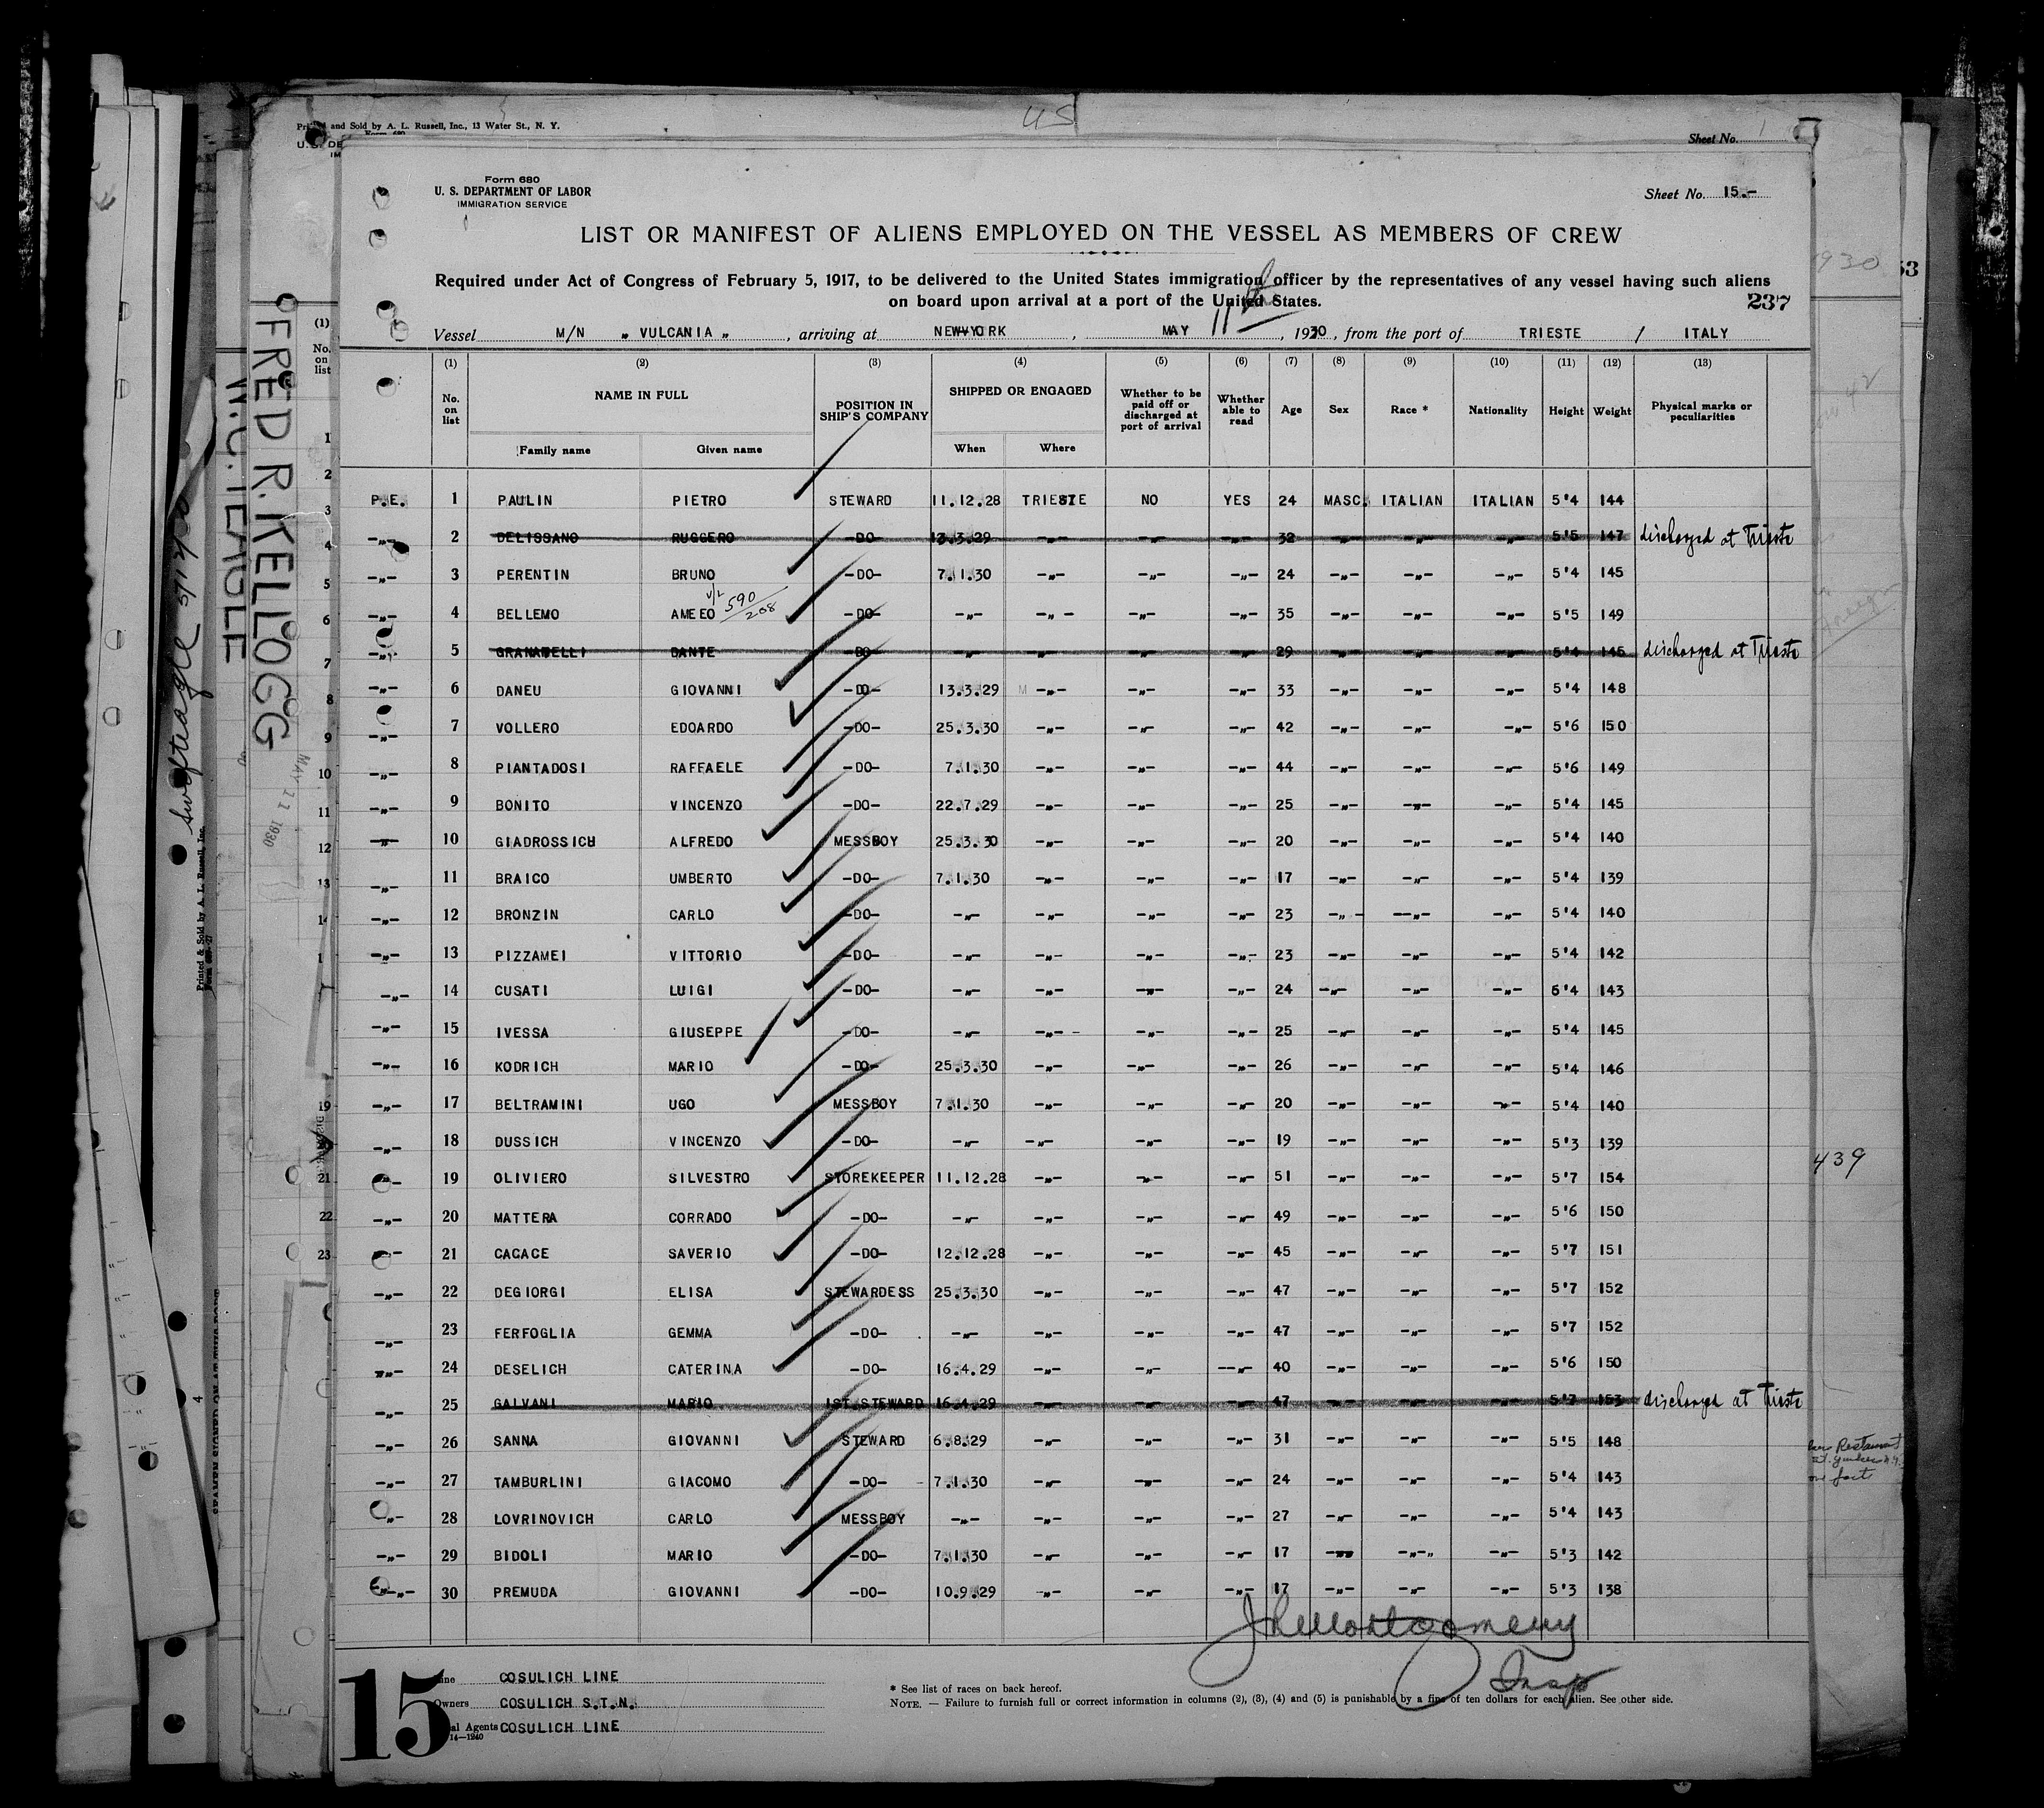 Printed and Sold by A. L. Russell, Inc., 13 Water St., N. Y.
US
Sheet No.
Form 680
U. S. DEPARTMENT OF LABOR
IMMIGRATION SERVICE
Sheet No. 15.-
LIST OR MANIFEST OF ALIENS EMPLOYED ON THE VESSEL AS MEMBERS OF CREW
Required under Act of Congress of February 5, 1917, to be delivered to the United States immigration officer by the representatives of any vessel having such aliens
on board upon arrival at a port of the United States.
237
Vessel M/N „ VULCANIA „ , arriving at NEW-YORK , MAY 11th , 1930 , from the port of TRIESTE / ITALY
(1) (2) (3) (4) (5) (6) (7) (8) (9) (10) (11) (12) (13)
No. on list NAME IN FULL POSITION IN SHIP'S COMPANY SHIPPED OR ENGAGED Whether to be paid off or discharged at port of arrival Whether able to read Age Sex Race * Nationality Height Weight Physical marks or peculiarities
Family name Given name When Where
P.E. 1 PAULIN PIETRO STEWARD 11.12.28 TRIESTE NO YES 24 MASC. ITALIAN ITALIAN 5'4 144
-„- 2 DELISSANO RUGGERO -DO- 13.3.29 -„- -„- -„- 32 -„- -„- -„- 5'5 147 discharged at Trieste
-„- 3 PERENTIN BRUNO -DO- 7.1.30 -„- -„- -„- 24 -„- -„- -„- 5'4 145
-„- 4 BELLEMO AMEEO 590/208 -DO- -„- -„- -„- -„- 35 -„- -„- -„- 5'5 149
-„- 5 GRANATELLI DANTE -DO- -„- -„- -„- -„- 29 -„- -„- -„- 5'4 145 discharged at Trieste
-„- 6 DANEU GIOVANNI -DO- 13.3.29 -„- -„- -„- 33 -„- -„- -„- 5'4 148
-„- 7 VOLLERO EDOARDO -DO- 25.3.30 -„- -„- -„- 42 -„- -„- -„- 5'6 150
-„- 8 PIANTADOSI RAFFAELE -DO- 7.1.30 -„- -„- -„- 44 -„- -„- -„- 5'6 149
-„- 9 BONITO VINCENZO -DO- 22.7.29 -„- -„- -„- 25 -„- -„- -„- 5'4 145
-„- 10 GIADROSSICH ALFREDO MESSBOY 25.3.30 -„- -„- -„- 20 -„- -„- -„- 5'4 140
-„- 11 BRAICO UMBERTO -DO- 7.1.30 -„- -„- -„- 17 -„- -„- -„- 5'4 139
-„- 12 BRONZIN CARLO -DO- -„- -„- -„- -„- 23 -„- -„- -„- 5'4 140
-„- 13 PIZZAMEI VITTORIO -DO- -„- -„- -„- -„- 23 -„- -„- -„- 5'4 142
-„- 14 CUSATI LUIGI -DO- -„- -„- -„- -„- 24 -„- -„- -„- 5'4 143
-„- 15 IVESSA GIUSEPPE -DO- -„- -„- -„- -„- 25 -„- -„- -„- 5'4 145
-„- 16 KODRICH MARIO -DO- 25.3.30 -„- -„- -„- 26 -„- -„- -„- 5'4 146
-„- 17 BELTRAMINI UGO MESSBOY 7.1.30 -„- -„- -„- 20 -„- -„- -„- 5'4 140
-„- 18 DUSSICH VINCENZO -DO- -„- -„- -„- -„- 19 -„- -„- -„- 5'3 139
-„- 19 OLIVIERO SILVESTRO STOREKEEPER 11.12.28 -„- -„- -„- 51 -„- -„- -„- 5'7 154
-„- 20 MATTERA CORRADO -DO- -„- -„- -„- -„- 49 -„- -„- -„- 5'6 150
-„- 21 CACACE SAVERIO -DO- 12.12.28 -„- -„- -„- 45 -„- -„- -„- 5'7 151
-„- 22 DEGIORGI ELISA STEWARDESS 25.3.30 -„- -„- -„- 47 -„- -„- -„- 5'7 152
-„- 23 FERFOGLIA GEMMA -DO- -„- -„- -„- -„- 47 -„- -„- -„- 5'7 152
-„- 24 DESELICH CATERINA -DO- 16.4.29 -„- -„- -„- 40 -„- -„- -„- 5'6 150
-„- 25 GALVANI MARIO 1ST.STEWARD 16.4.29 -„- -„- -„- 47 -„- -„- -„- 5'7 153 discharged at Trieste
-„- 26 SANNA GIOVANNI STEWARD 6.8.29 -„- -„- -„- 31 -„- -„- -„- 5'5 148
-„- 27 TAMBURLINI GIACOMO -DO- 7.1.30 -„- -„- -„- 24 -„- -„- -„- 5'4 143
-„- 28 LOVRINOVICH CARLO MESSBOY -„- -„- -„- -„- 27 -„- -„- -„- 5'4 143
-„- 29 BIDOLI MARIO -DO- 7.1.30 -„- -„- -„- 17 -„- -„- -„- 5'3 142
-„- 30 PREMUDA GIOVANNI -DO- 10.9.29 -„- -„- -„- 17 -„- -„- -„- 5'3 138
JhMontgomery
Insp
15
COSULICH LINE
Owners COSULICH S.T.N.
Agents COSULICH LINE
14-1240
* See list of races on back hereof.
NOTE. — Failure to furnish full or correct information in columns (2), (3), (4) and (5) is punishable by a fine of ten dollars for each alien. See other side.
FRED R. KELLOGG
W.C. TEAGLE
Swifteagle 5/12/30
MAY 11 1930
Printed & Sold by A. L. Russell, Inc.
1930
53
439